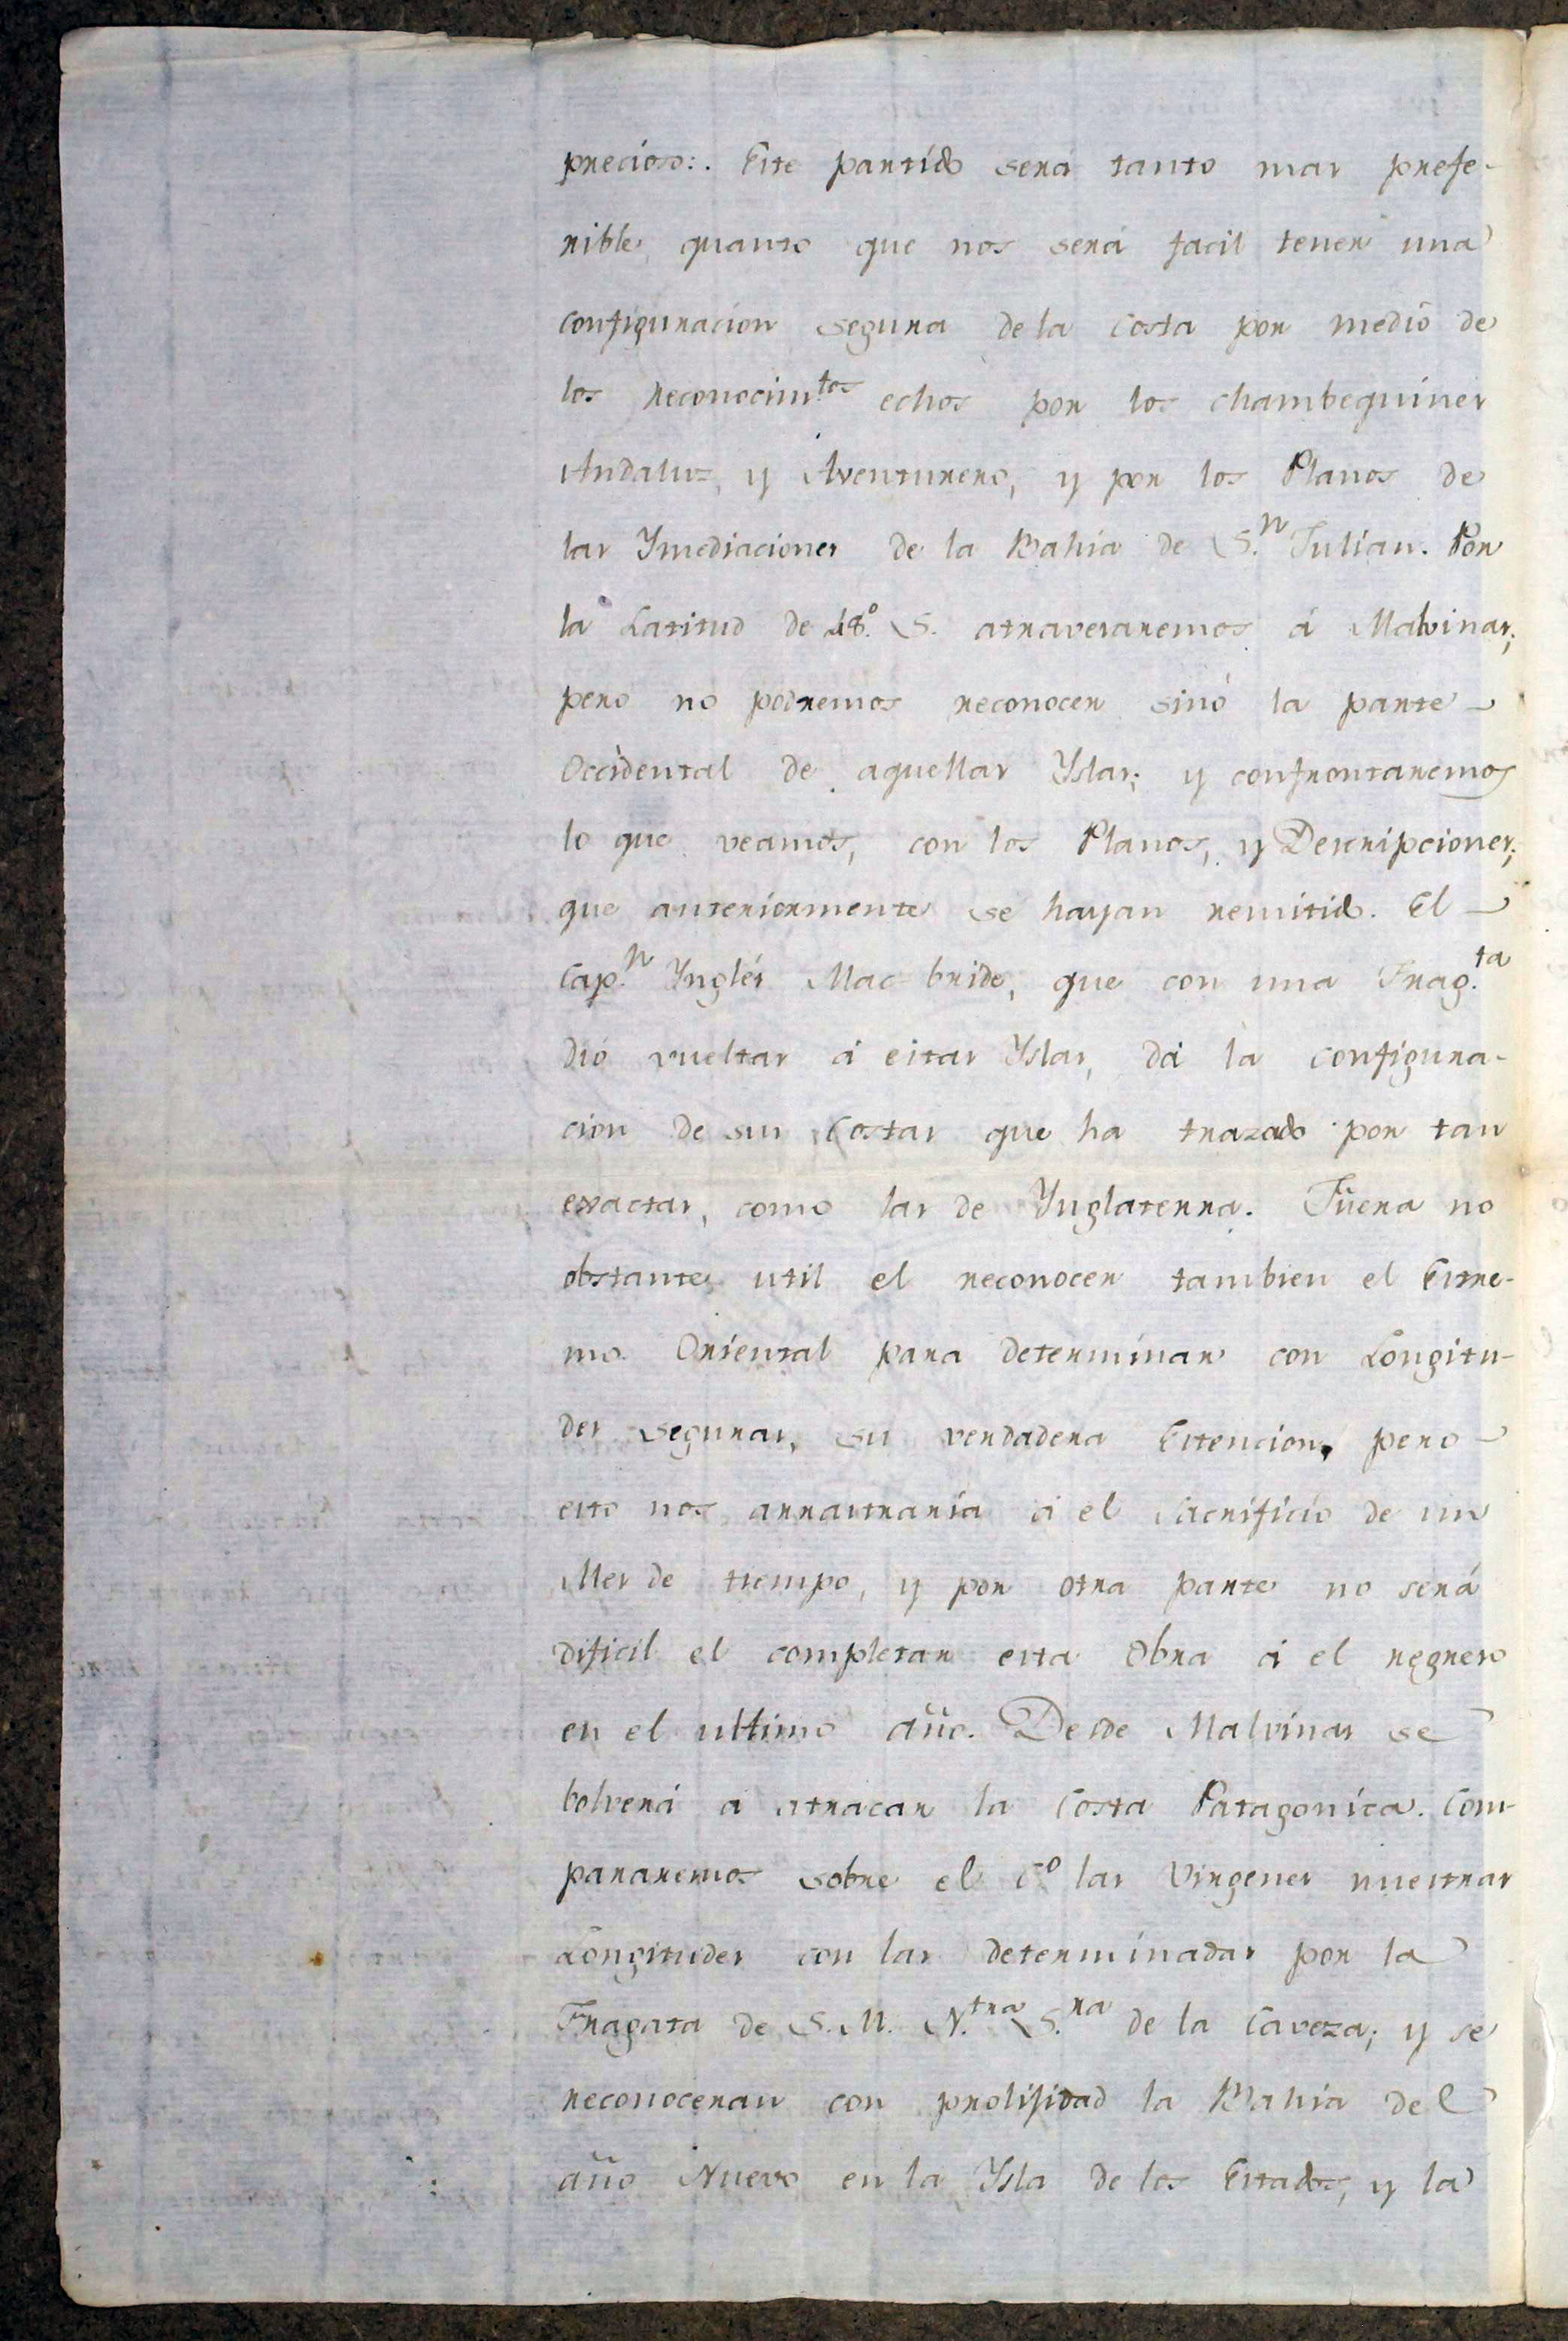 precioso:. Este partido será tanto mas prefe-
rible quanto que nos será facil tener una
configuracion segura de la Costa por medio de
los reconocim.tos echos por los chambequines
Andaluz, y Aventurero, y por los Planos de
las Ymediaciones de la Bahia de S.n Julian. Por
la Latitud de 48.° S. atravesaremos á Malvinas;
pero no podremos reconocer sinó la parte
Occidental de aquellas Yslas; y confrontaremos
lo que veamos, con los Planos, y Descripciones,
que anteriormente se hayan remitido. El
Cap.n Ynglés Mac-bride, que con una Frag.ta
dió vueltas á estas Yslas, dá la configura-
cion de sus Costas que ha trazado por tan
exactas, como las de Ynglaterra. Fuera no
obstante util el reconocer tambien el Estre-
mo Oriental para determinar con Longitu-
des seguras, su verdadera Estencion, pero
esto nos arrastraría á el Sacrificio de un
Mes de tiempo, y por otra parte no será
dificil el completar esta Obra á el regreso
en el ultimo año. Desde Malvinas se
bolverá a atracar la Costa Patagonica. Com-
pararemos sobre el C.o las Virgenes nuestras
Longitudes con las determinadas por la
Fragata de S.M. N.tra S.ra de la Caveza; y se
reconoceran con prolijidad la Bahia del
año Nuevo en la Ysla de los Estados, y la